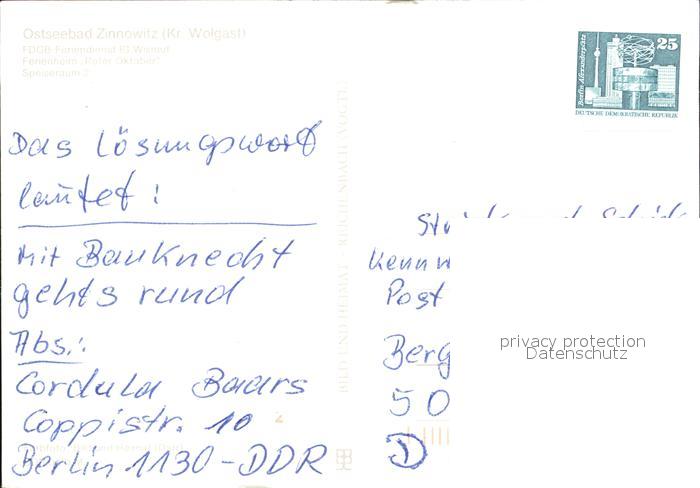 Ostseebad Zinnowitz (Kr. Wolgast)
FDGB-Feriendienst IG Wismut
Ferienheim „Roter Oktober"
Speiseraum 2
Berlin, Alexanderplatz
25
DEUTSCHE DEMOKRATISCHE REPUBLIK
Das Lösungswort
lautet:
Mit Bauknecht
gehts rund
Abs.:
Cordula Baars
Coppistr. 10
Berlin 1130-DDR
BILD UND HEIMAT REICHENBACH (VOGTL)
Kennw
Post
Berg
50
D
privacy protection
Datenschutz